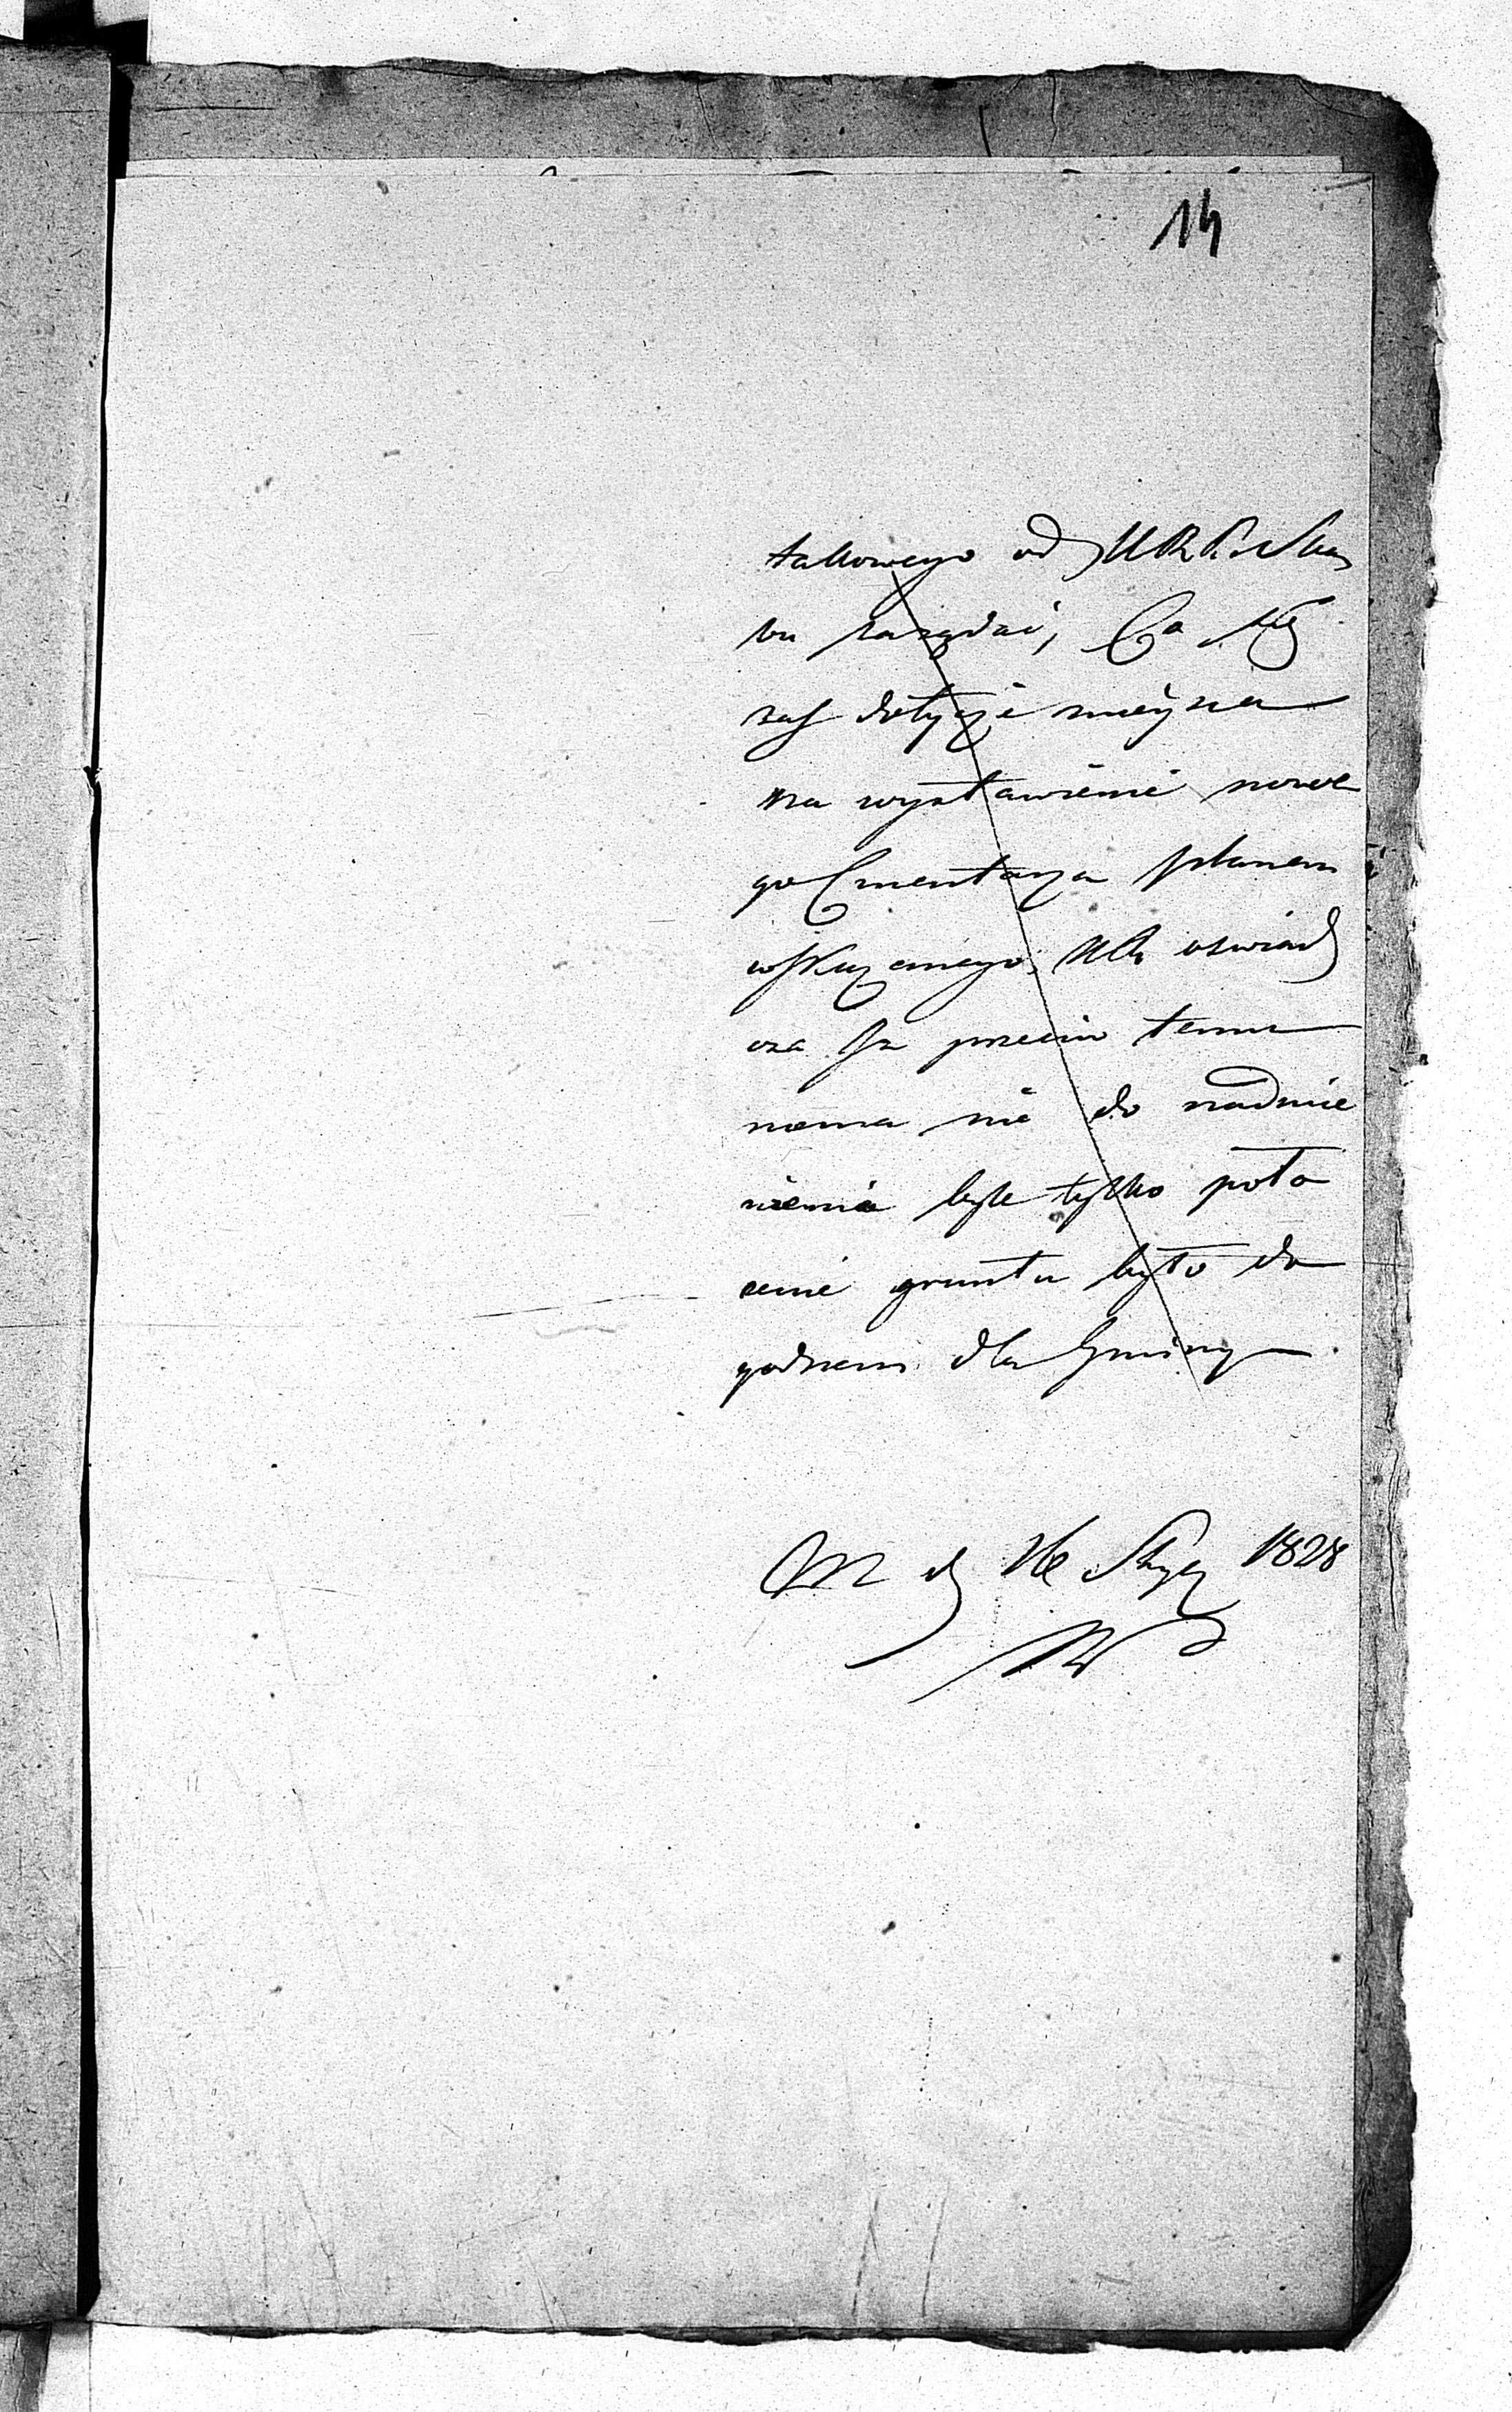 14
takowego od
bu zarządać, Co się
zaś dotycze mieysca
na wystawienie nowe
go Cmentarza planem
wskazanego, oświad
cza że przeciw temu
nema nic do nadmie
nienia byle tylko poło
żenie gruntu było do
godnem dla Gminy
M d 16 Stycz 1828